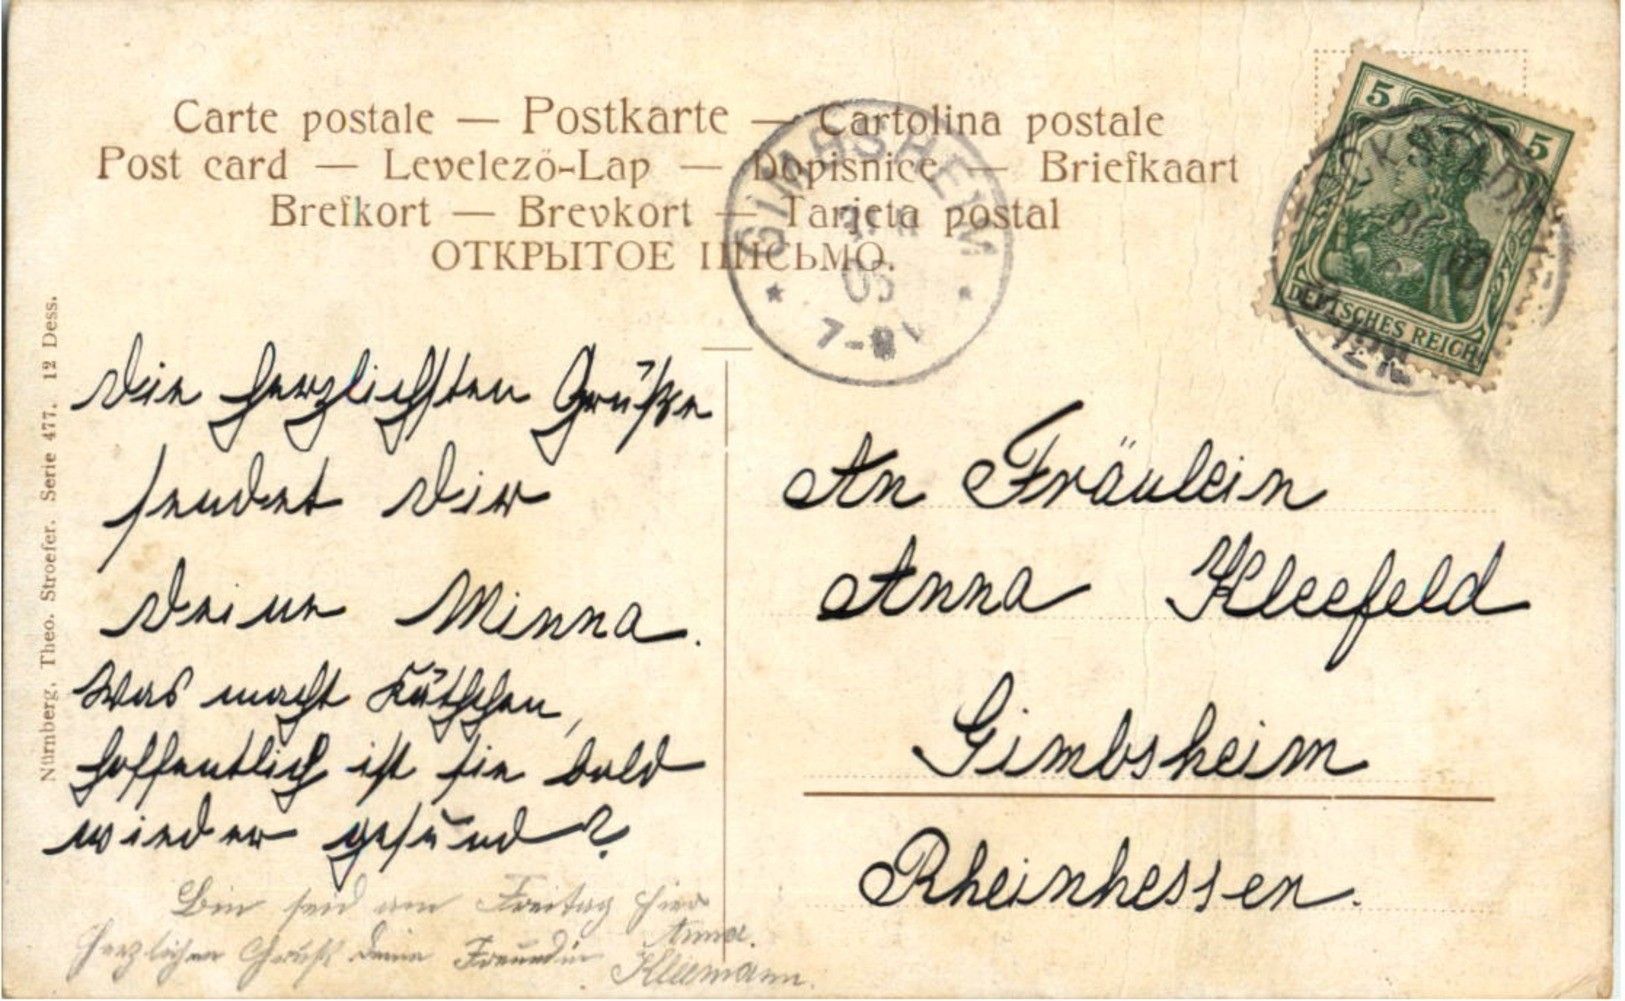 Carte postale — Postkarte — Cartolina postale
Post card — Levelező-Lap — Dopisnice — Briefkaart
Brefkort — Brevkort — Tarjeta postal
ОТКРЫТОЕ ПИСЬМО.
GIMBSHEIM
05
7-8V
5 5
DEUTSCHES REICH
Nürnberg. Theo. Stroefer. Serie 477. 12 Dess.
Die herzlichsten Grüße
sendet Dir
Deine Minna.
Was macht Käthchen,
hoffentlich ist sie bald
wieder gesund?
Bin seid am Freitag hier
Herzlichen Gruß Deine Freundin Anna.
Kleemann.
An Fräulein
Anna Kleefeld
Gimbsheim
Rheinhessen.